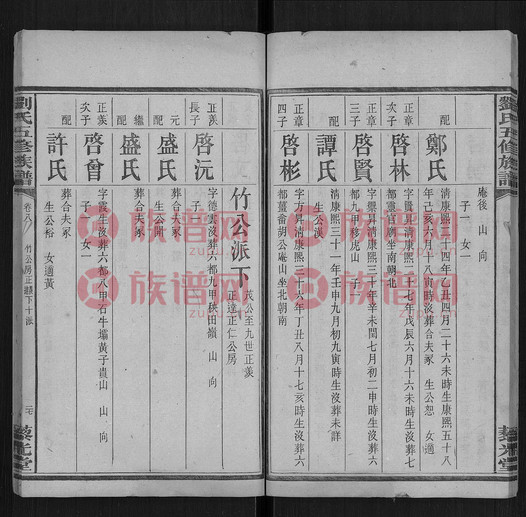 劉氏五修族譜
藜光堂
庵後 山 向
子一 女一
配
鄭氏
清康熙二十四年乙丑四月二十六未時生康熙五十八
年己亥六月十八寅時沒葬合夫冢 生公恕 女適
正章
次子
啓林
正章
三子
啓賢
字 昇清康熙三十年辛未閏七月初二申時生沒葬六
都九甲移虎山 子一
配
譚氏
清康熙三十一年壬申九月初九寅時生沒葬未詳
生公漢
正章
四子
啓彬
字方昇清康熙三十六年丁丑八月十七亥時生沒葬六
都薑畬胡公庵山坐北朝南
竹公派下
茂公至九世正羨
正遠正仁公房
正羨
長子
啓沅
字德 沒葬六都九甲秧田嶺 山 向
子一
元
配
盛氏
葬合夫冢
生公開
繼
配
盛氏
葬合夫冢
正羨
次子
啓曾
字 生沒葬六都八甲石牛壩黃子貴山 山 向
子一 女一
配
許氏
葬合夫冢
生公裕 女適黃
劉氏五修族譜
卷八
竹公房正羨下十派
藜光堂
族谱网